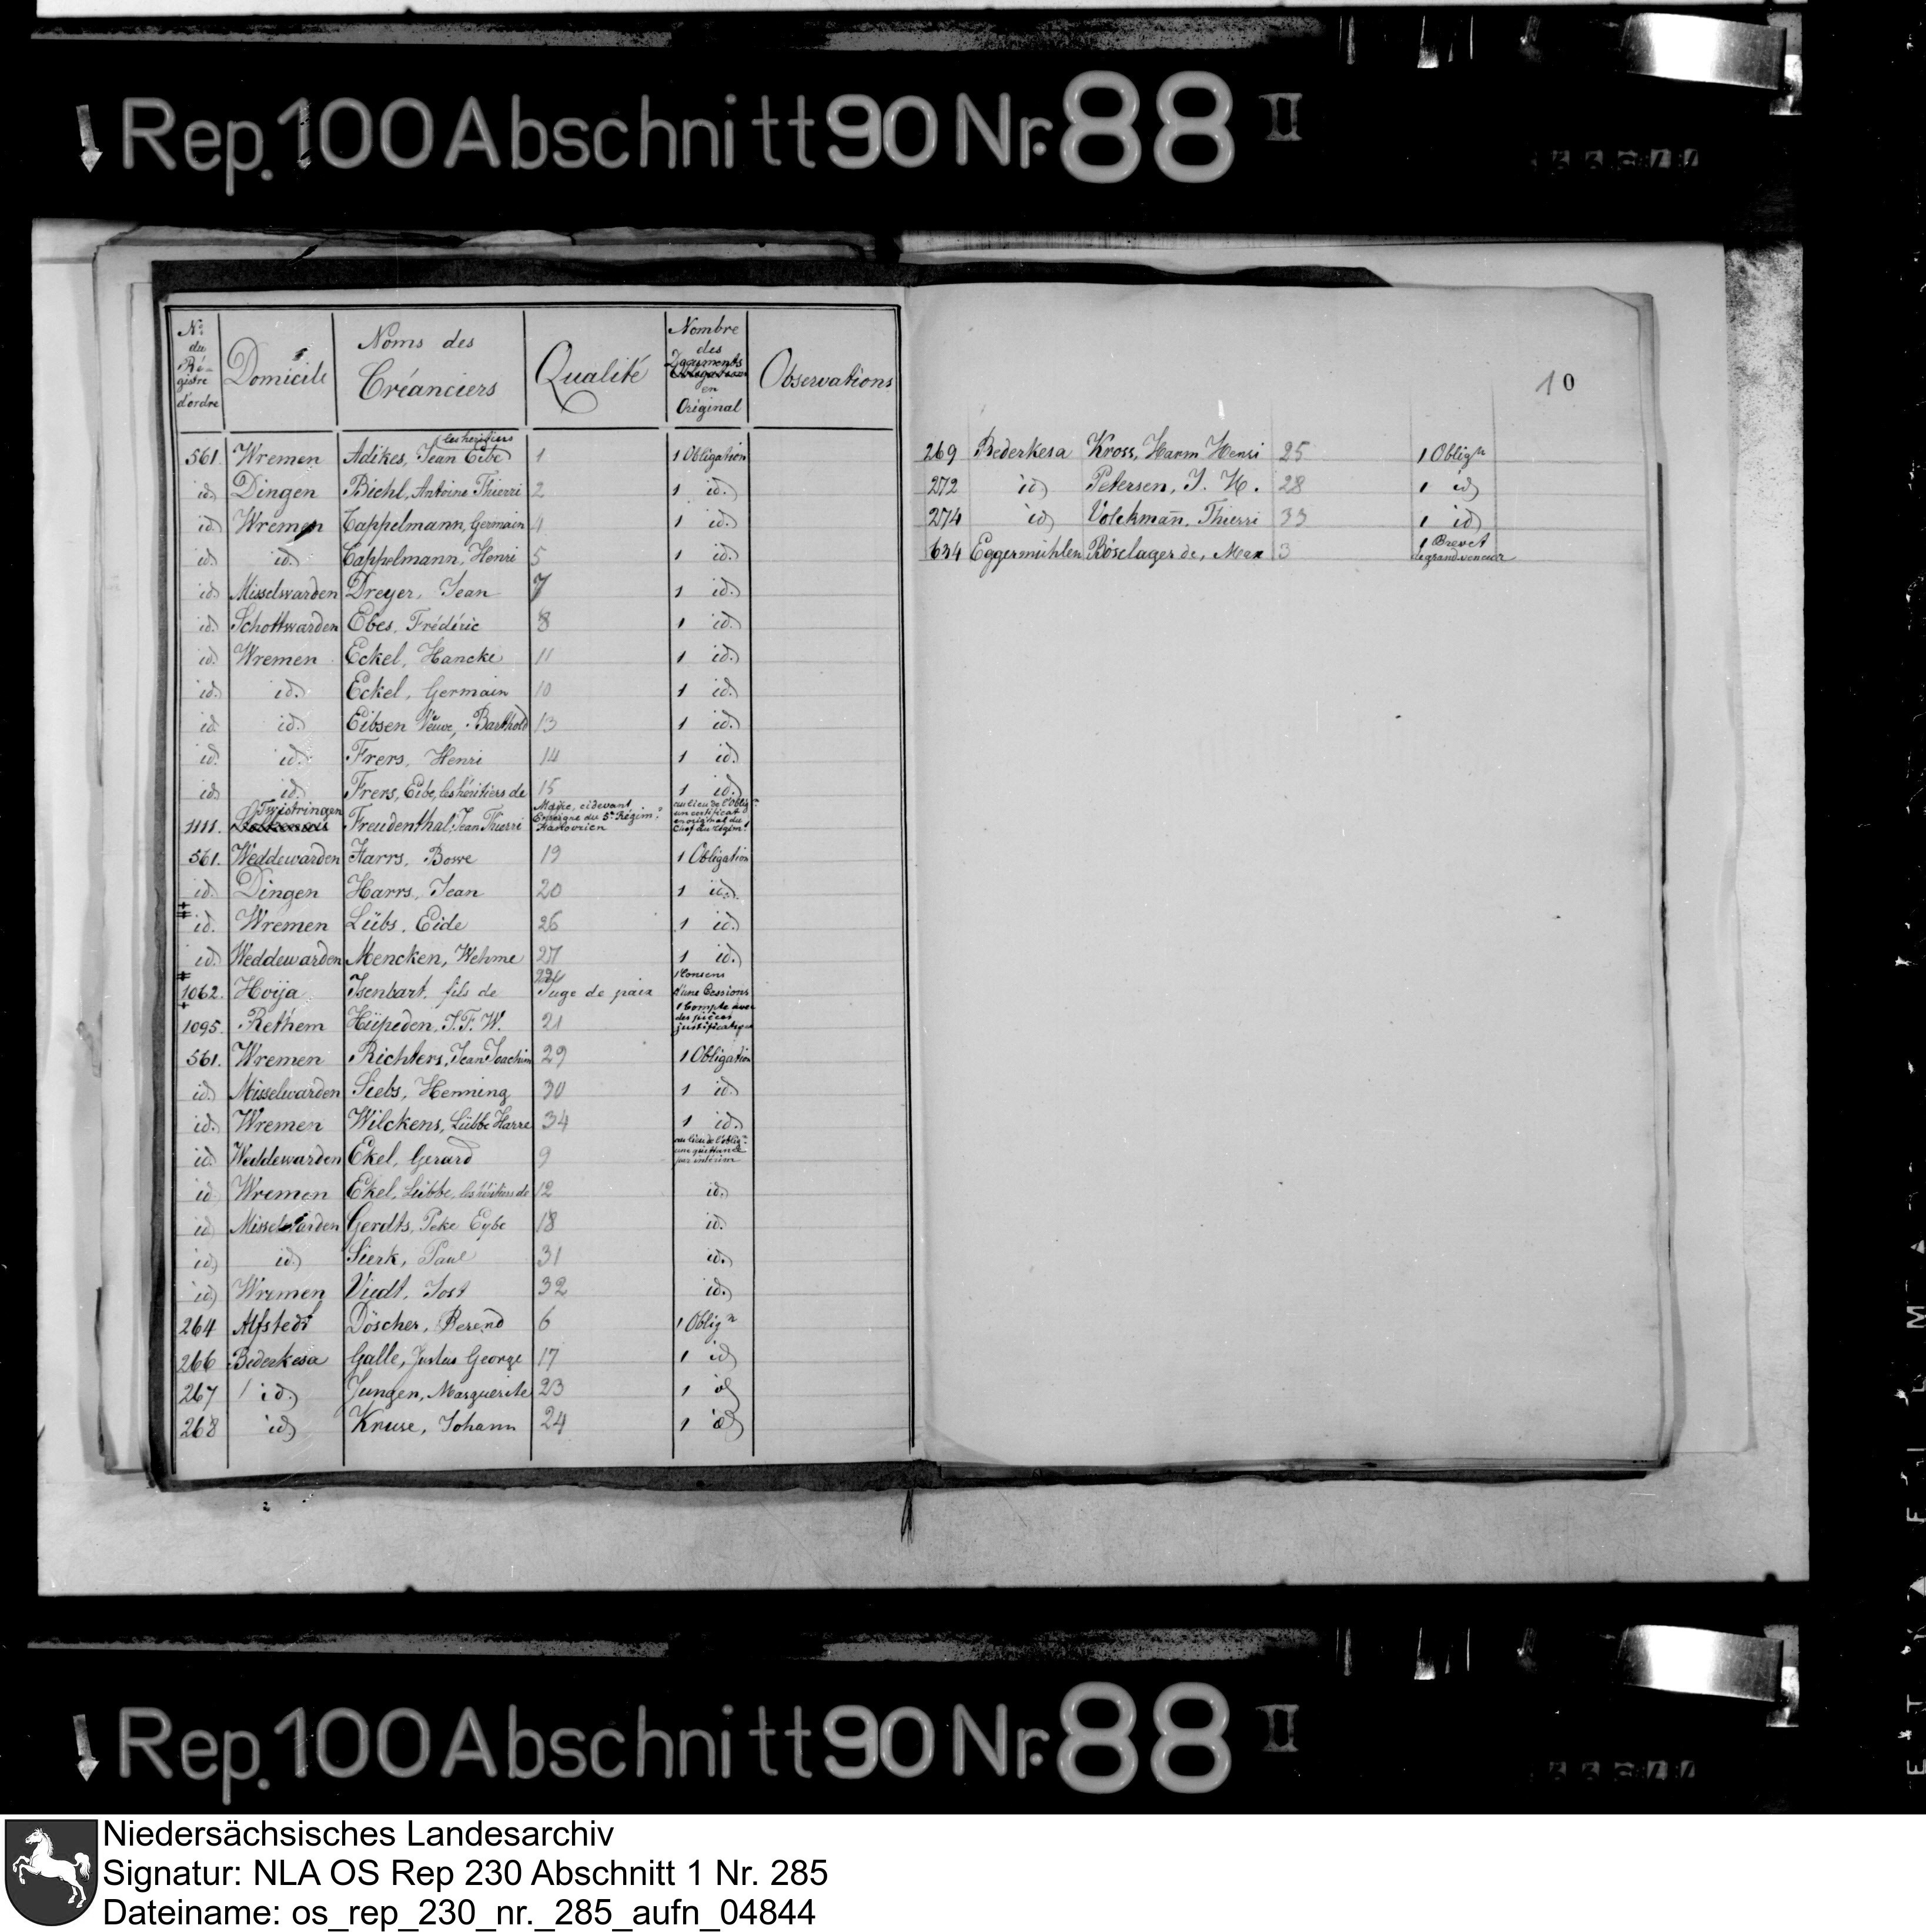 Rep. 100 Abschnitt 90 Nr. 88 II
N.o du Régistre d'ordre | Domicile | Noms des Créanciers | Qualité | Nombre des Documents en Original | Observations
561. Wremen Adikes, Jean Eibe les héritiers 1 1 Obligation
id. Dingen Bichl, Antoine Thierri 2 1 id.
id. Wremen Cappelmann, Germain 4 1 id.
id. id. Cappelmann, Henri 5 1 id.
id. Misselwarden Dreyer, Jean 7 1 id.
id. Schottwarden Ebes, Frédéric 8 1 id.
id. Wremen Eckel, Hancke 11 1 id.
id. id. Eckel, Germain 10 1 id.
id. id. Eibsen Veuve, Barthold 13 1 id.
id. id. Frers, Henri 14 1 id.
id. id. Frers, Eibe, les héritiers de 15 1 id.
1111. Twistringen Freudenthal, Jean Thierri Maire, cidevant Enseigne du 5e Régim.t Hanovrien au lieu de l'oblig.n un certificat en original du Chef du régim.t
561. Weddewarden Harrs, Bowe 19 1 Obligation
id. Dingen Harrs, Jean 20 1 id.
id. Wremen Lübs, Eide 26 1 id.
id. Weddewarden Mencken, Wehme 27 1 id.
1062. Hoÿa Isenbart, fils de Juge de paix 1 Consens d'une Cessions
1095. Rethem Hüpeden, J. F. W. 21 1 Compte avec des pièces justificatives
561. Wremen Richters, Jean Joachim 29 1 Obligation
id. Misselwarden Siebs, Henning 30 1 id.
id. Wremen Wilckens, Lübbe Harre 34 1 id.
id. Weddewarden Ekel, Gerard 9 au lieu de l'oblig.n une quittance par intérim
id. Wremen Ekel, Lübbe, les héritiers de 12 id.
id. Misselwarden Gerdts, Peke Eybe 18 id.
id. id. Sierk, Paul 31 id.
id. Wremen Viedt, Jost 32 id.
264 Alfstedt Döscher, Berend 6 1 Oblig.n
266 Bederkesa Galle, Justus George 17 1 id
267 id. Jungen, Marguerite 23 1 id
268 id Kruse, Johann 24 1 id
10
269 Bederkesa Kross, Harm Henri 25 1 Oblig.n
272 id Petersen, J. H. 28 1 id
274 id Volckmañ, Thierri 33 1 id
634 Eggermühlen Böselager de, Max 3 1 Brevet de grand veneur
Rep. 100 Abschnitt 90 Nr. 88 II
Niedersächsisches Landesarchiv
Signatur: NLA OS Rep 230 Abschnitt 1 Nr. 285
Dateiname: os_rep_230_nr._285_aufn_04844